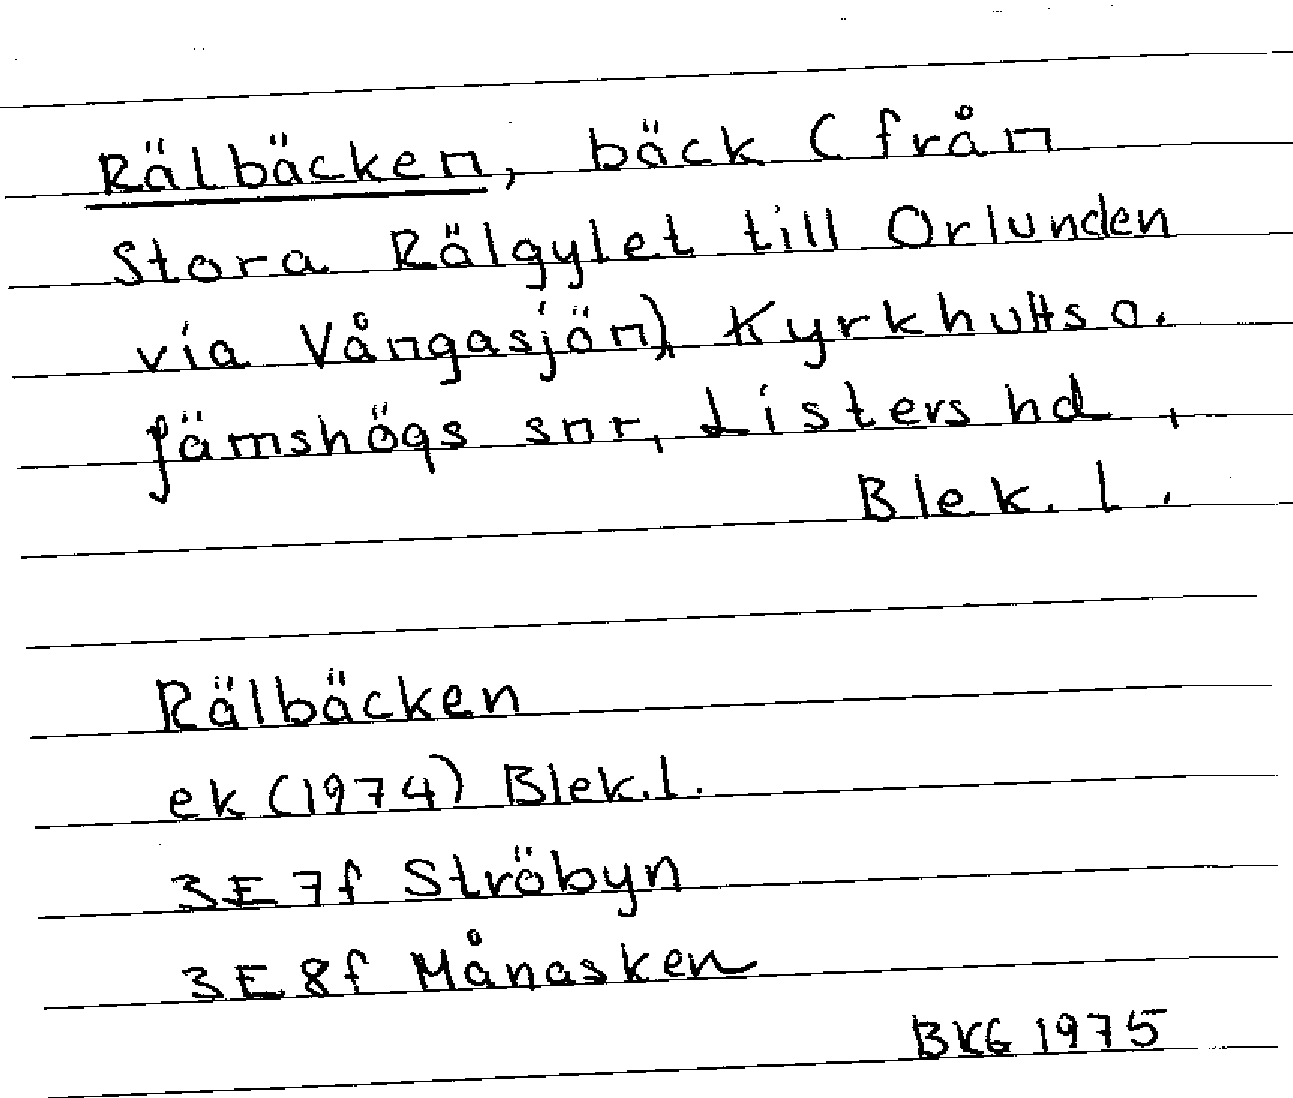 Rälbäcken, bäck (från
Stora Rälgylet till Orlunden
via Vångasjön), Kyrkhults o.
Jämshögs snr, Listers hd,
Blek. l.
Rälbäcken
ek (1974) Blek. l.
3E 7f Ströbyn
3E 8f Månasken
BKG 1975